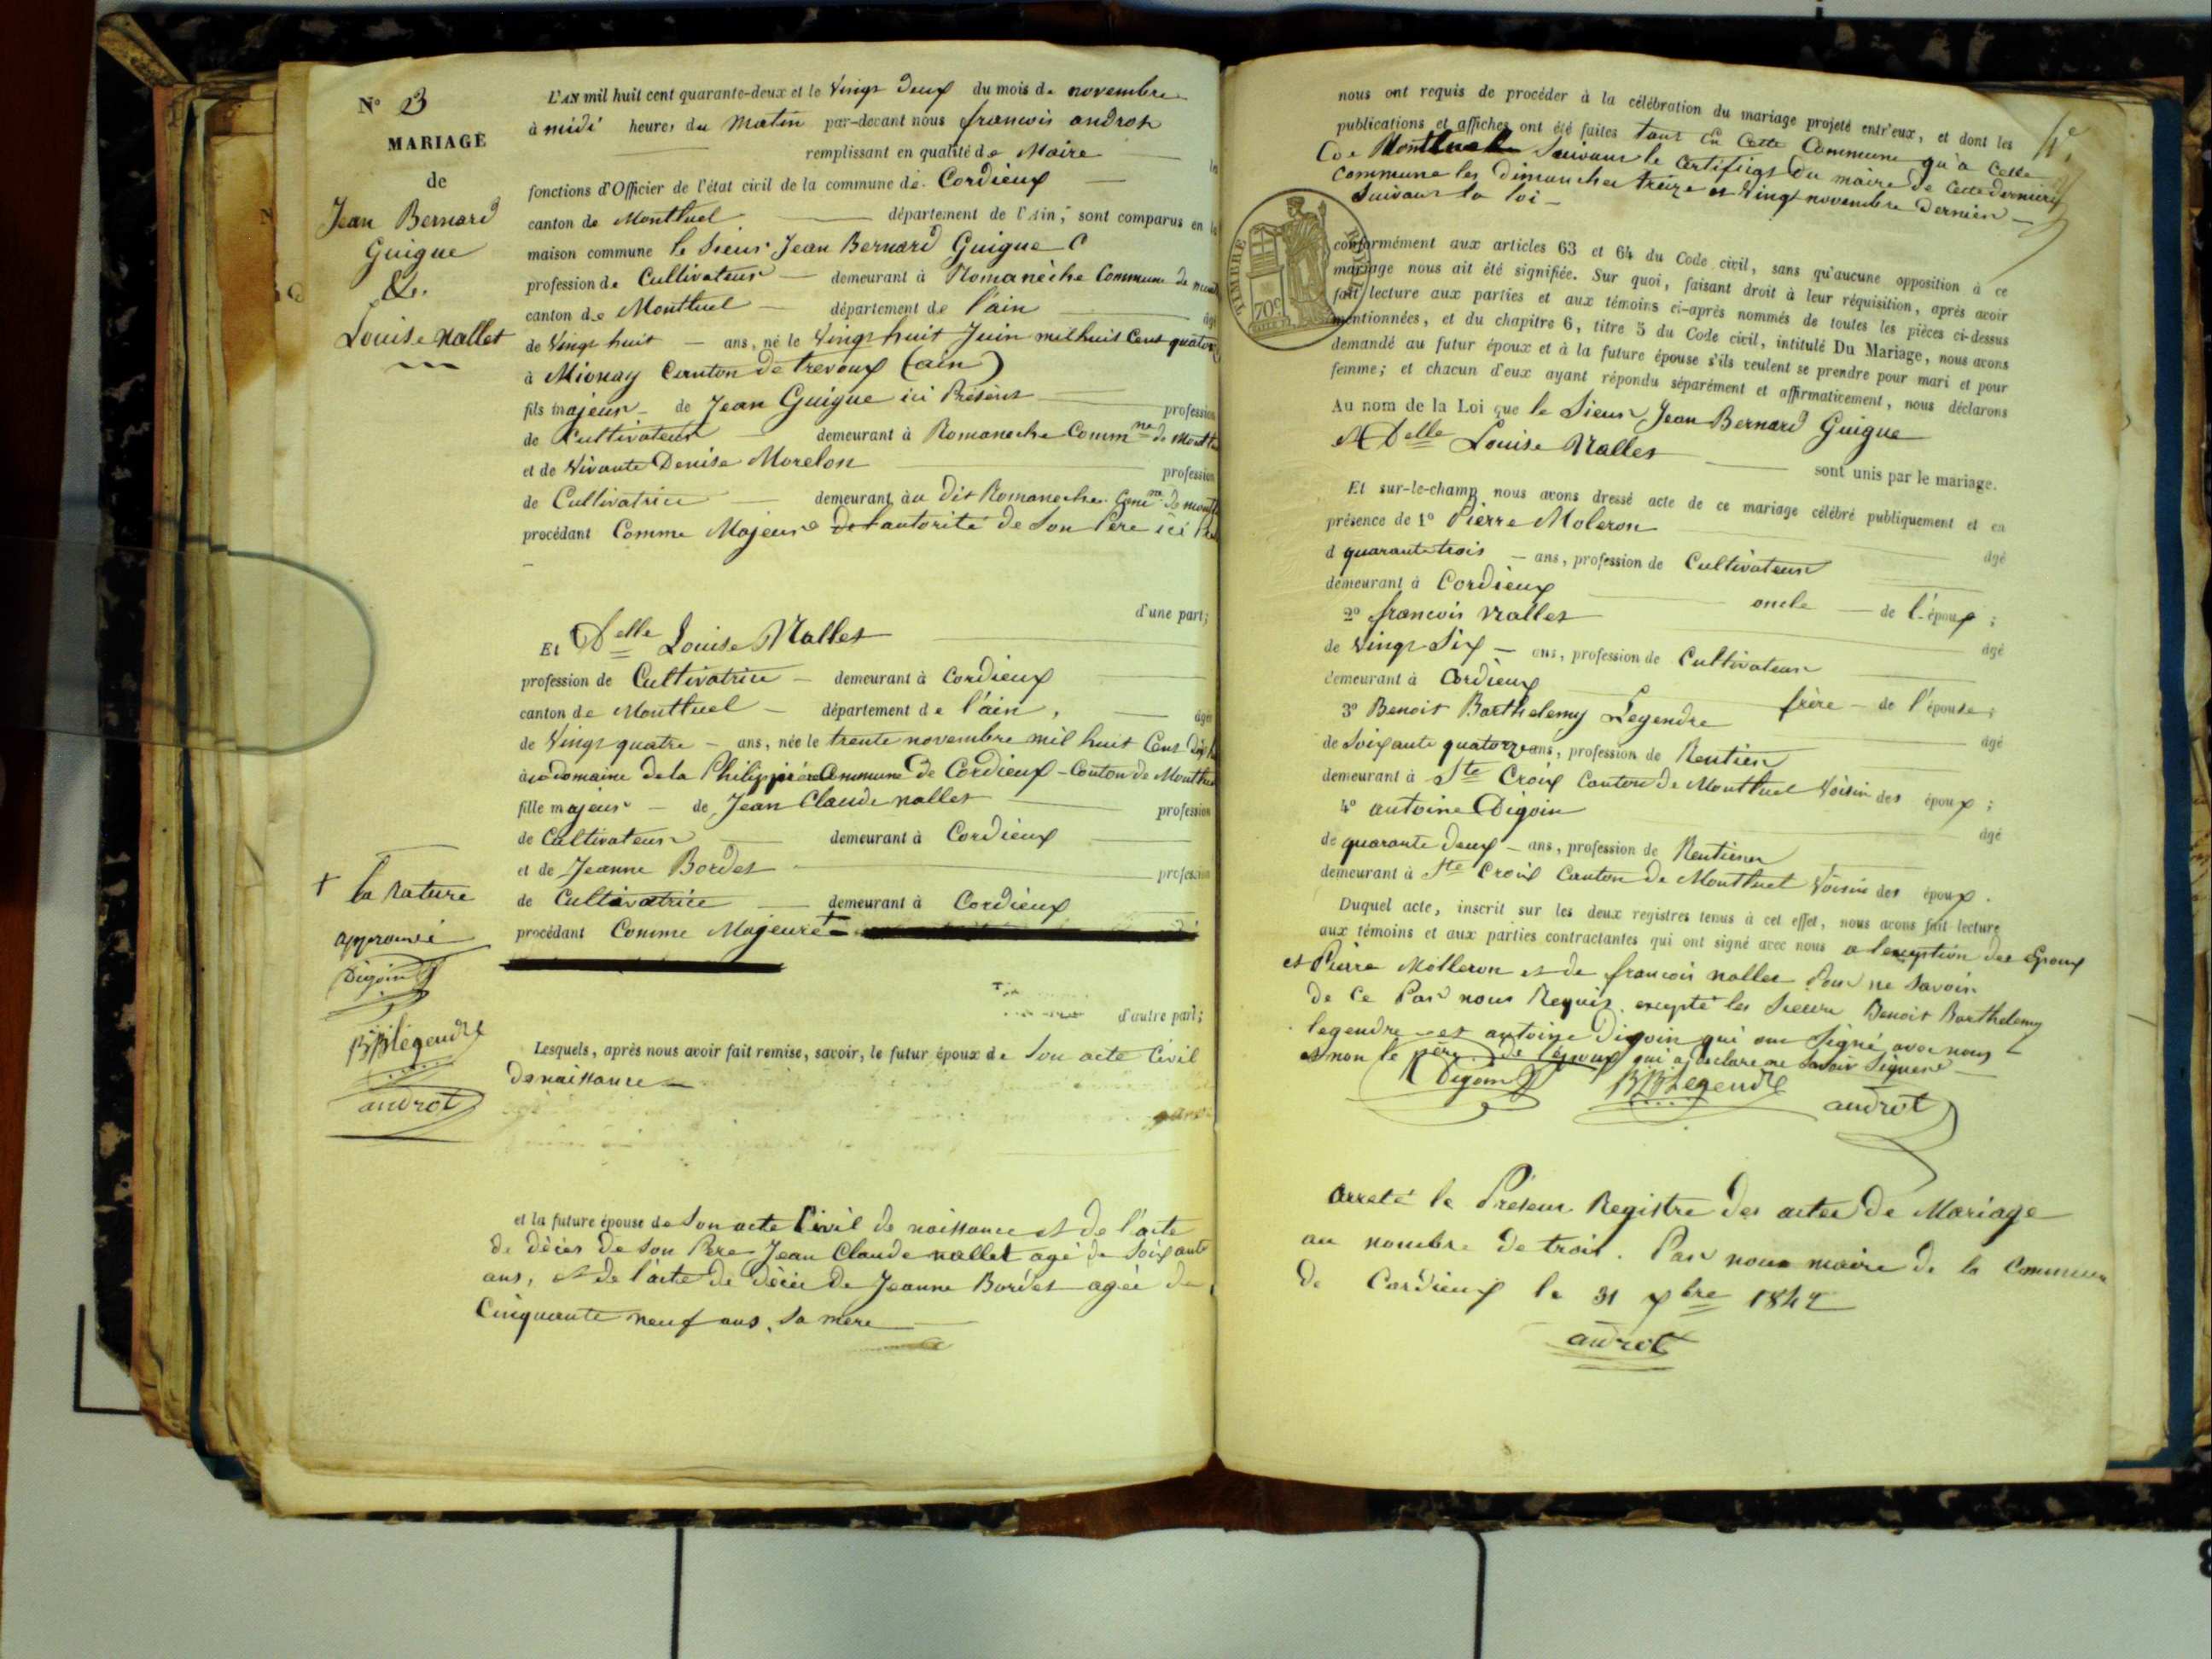 N° 3
MARIAGE
de
Jean Bernard
Guigue
&.
Louise Nallet
L'AN mil huit cent quarante-deux et le Vingt deux du mois de novembre
à midi heures du Matin par-devant nous francois androt
remplissant en qualité de Maire les
fonctions d'Officier de l'état civil de la commune de Cordieux
canton de Montluel département de l'Ain, sont comparus en la
maison commune le Sieur Jean Bernard Guigue
profession de Cultivateur demeurant à Romanèche Commune de
canton de Montluel département de l'ain âgé
de Vingt huit ans, né le Vingt huit Juin mil huit Cent quatorze
à Mionay Canton de trevoux (ain)
fils majeur de Jean Guigue ici Présent profession
de Cultivateur demeurant à Romaneche Commne de
et de Vivante Denise Morelon profession
de Cultivatrice demeurant au dit Romaneche Comne de
procédant Comme Majeur de l'autorité de Son Père ici
d'une part;
Et Delle Louise Nallet
profession de Cultivatrice demeurant à Cordieux
canton de Montluel département de l'ain, âgée
de Vingt quatre ans, née le trente novembre mil huit Cent
au domaine de la Philippière Commune de Cordieux Canton de Montluel
fille majeur de Jean Claude nallet profession
de Cultivateur demeurant à Cordieux
et de Jeanne Bordet profession
de Cultivatrice demeurant à Cordieux
procédant Comme Majeure +
+ la Rature
approuvé
Digoin
BBLegendre
androt
d'autre part;
Lesquels, après nous avoir fait remise, savoir, le futur époux de Son acte Civil
de naissance
et la future épouse de Son acte Civil de naissance et de l'acte
de décès de Son Père Jean Claude nallet agé de Soixante
ans, et de l'acte de décès de Jeanne Bordet agée de
Cinquante neuf ans, Sa mère
nous ont requis de procéder à la célébration du mariage projeté entr'eux, et dont les
publications et affiches ont été faites tant en Cette Commune qu'a Celle
de Montluel Suivant le Certificat du maire de Cette dernière
Commune les Dimanches treize et Vingt novembre dernier
Suivant la loi
TIMBRE ROYAL
70c
conformément aux articles 63 et 64 du Code civil, sans qu'aucune opposition à ce
mariage nous ait été signifiée. Sur quoi, faisant droit à leur réquisition, après avoir
fait lecture aux parties et aux témoins ci-après nommés de toutes les pièces ci-dessus
mentionnées, et du chapitre 6, titre 5 du Code civil, intitulé Du Mariage, nous avons
demandé au futur époux et à la future épouse s'ils veulent se prendre pour mari et pour
femme; et chacun d'eux ayant répondu séparément et affirmativement, nous déclarons
Au nom de la Loi que le Sieur Jean Bernard Guigue
& Delle Louise Nallet
sont unis par le mariage.
Et sur-le-champ nous avons dressé acte de ce mariage célébré publiquement et en
présence de 1° Pierre Moleron âgé
d quarante trois ans, profession de Cultivateur
demeurant à Cordieux oncle de l'époux ;
2° francois nallet âgé
de Vingt Six ans, profession de Cultivateur
demeurant à Cordieux frère de l'épouse ;
3° Benoit Barthelemy Legendre âgé
de Soixante quatorze ans, profession de Rentier
demeurant à Ste Croix Canton de Montluel Voisin des époux ;
4° antoine Digoin âgé
de quarante deux ans, profession de Rentier
demeurant à Ste Croix Canton de Montluel Voisin des époux.
Duquel acte, inscrit sur les deux registres tenus à cet effet, nous avons fait lecture
aux témoins et aux parties contractantes qui ont signé avec nous a l'exeption des Epoux
et Pierre Molleron et de francois nallet Pour ne Savoir
de Ce Par nous Requis, excepté les Sieurs Benoit Barthelemy
legendre et antoine Digoin qui ont Signé avec nous
et non le père de l'époux qui a déclaré ne Savoir Signer
Digoin BBLegendre androt
arreté le Présent Registre des actes de Mariage
au nombre de trois. Par nous maire de la Commune
de Cordieux le 31 xbre 1842
androt